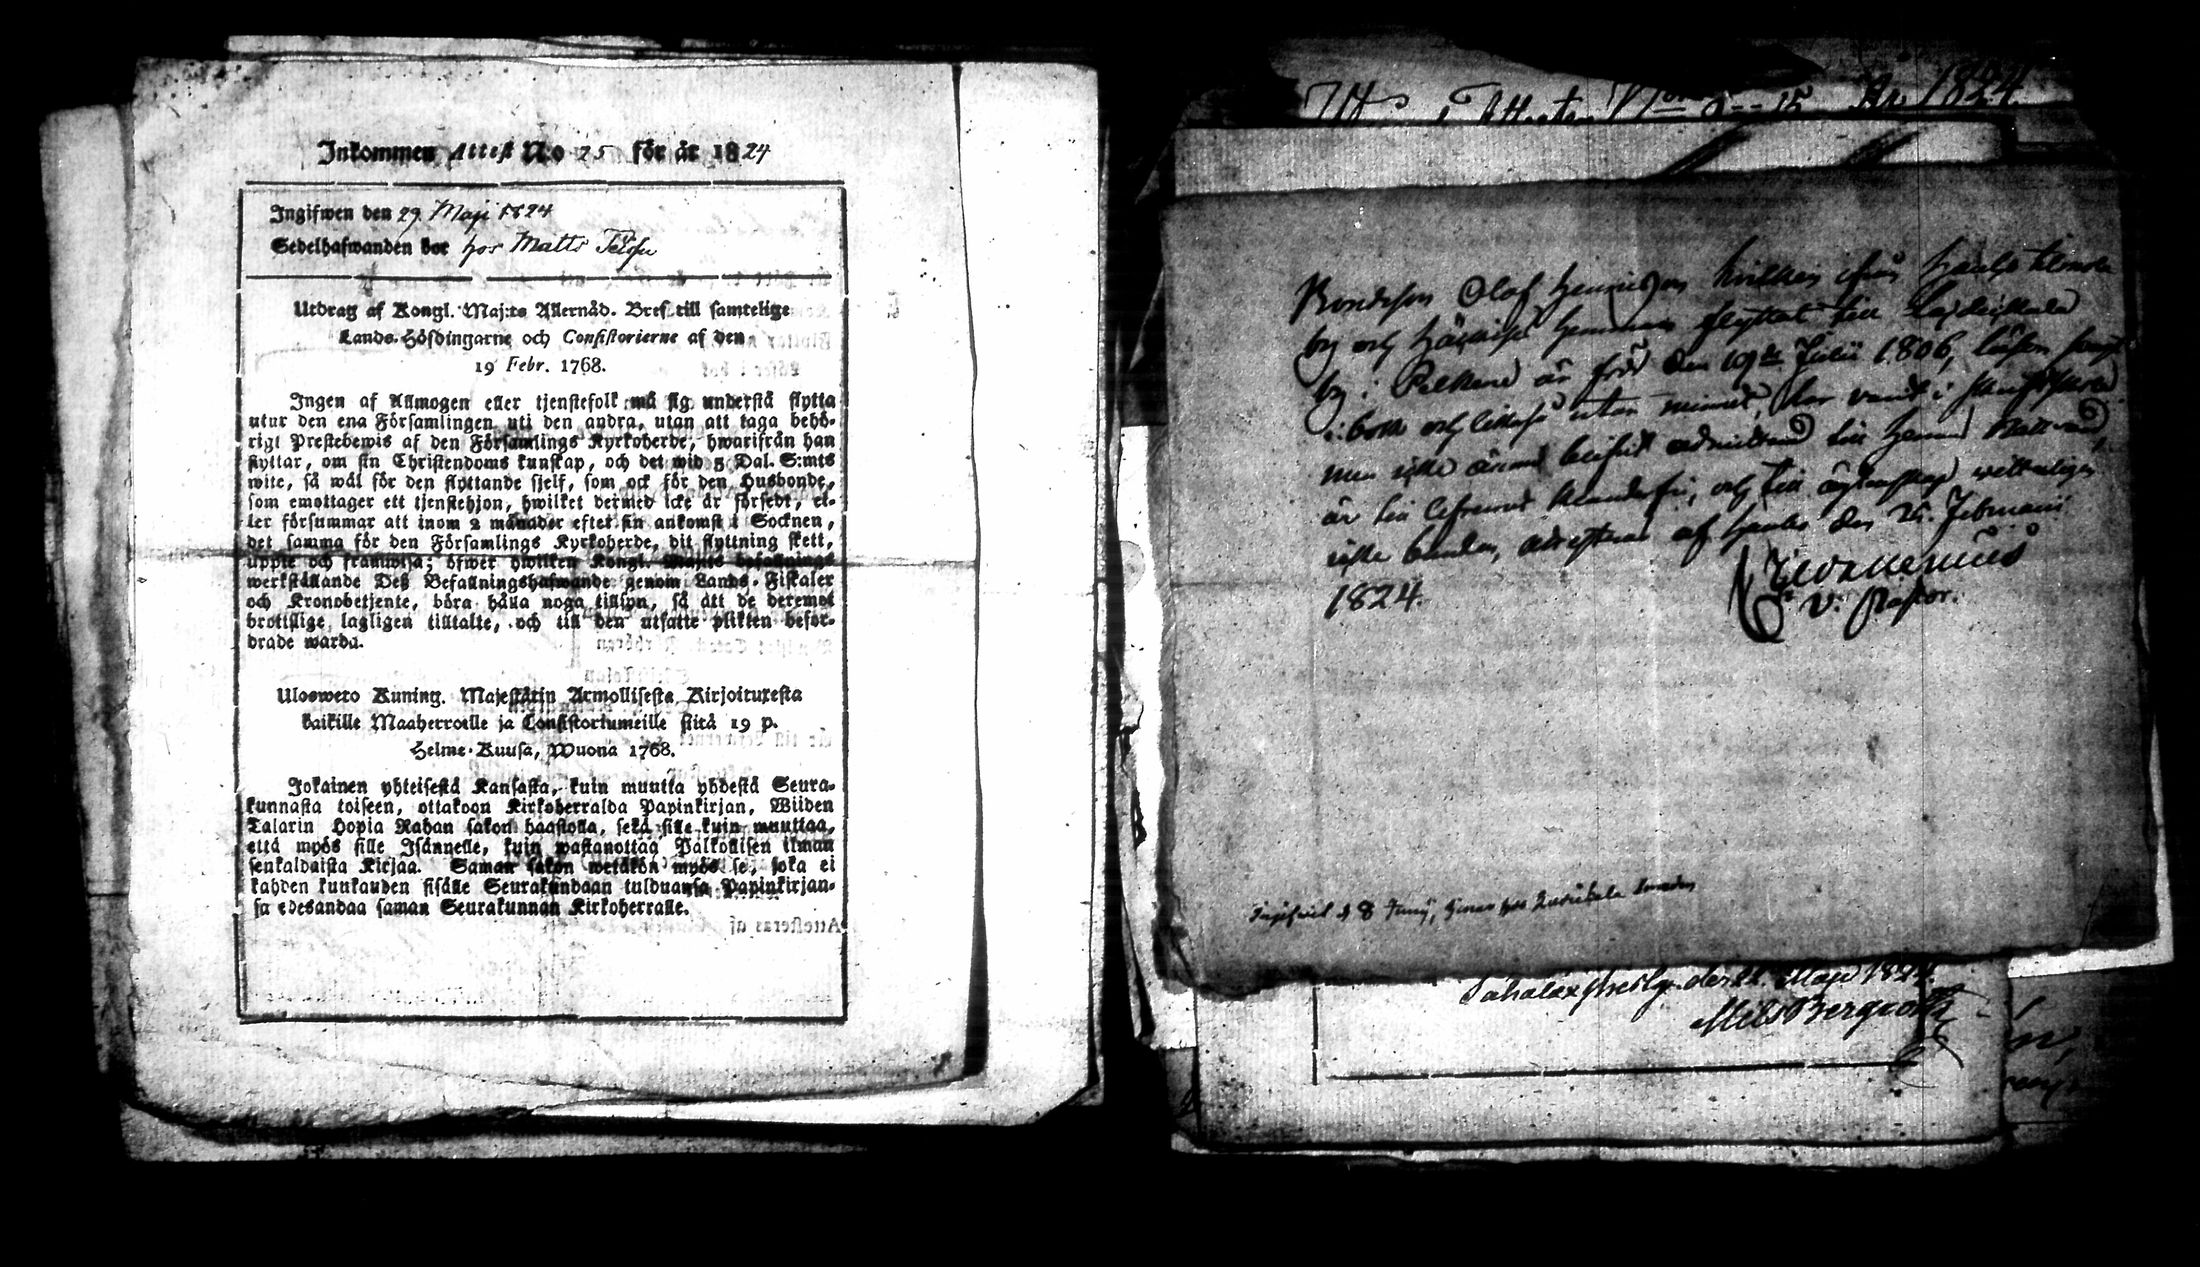 Inkommen Attest No 25 för år 1824
Ingifwen den 29. Maji 1824
Sedelhafwanden bor hos Matts
Utdrag af Kongl. Maj:ts Allernåd. Bref till samtelige
Lands-Höfdingarne och Consistorierne af den
19 Febr. 1768.
Ingen af Allmogen eller tjenstefolk må sig understå flytta
utur den ena Församlingen uti den andra, utan att taga behö-
rigt Prestebewis af den Församlings Kyrkoherde, hwarifrån han
flyttar, om sin Christendoms kunskap, och det wid 5 Dal. S:mts
wite, så wäl för den flyttande sjelf, som ock för den Husbonde,
som emottager ett tjenstehjon, hwilket dermed icke är försedt, el-
ler försummar att inom 2 månader efter sin ankomst i Socknen,
det samma för den Församlings Kyrkoherde, dit flyttning skett,
uppte och framwisa; öfwer hwilken Kongl. Maj:ts befallnings
werkställande Deß Befallningshafwande genom Lands-Fiskaler
och Kronobetjente, böra hålla noga tillsyn, så att de deremot
brottslige lagligen tilltalte, och till den utsatte plikten befor-
drade warda.
Ulosweto Kuning. Majestätin Armollisesta Kirjoituxesta
kaikille Maaherroille ja Consistoriumeille siitä 19 p.
Helme-Kuusa, Wuona 1768.
Jokainen yhteisestä Kansasta, kuin muutta yhdestä Seura-
kunnasta toiseen, ottakoon Kirkoherralda Papinkirjan, Wiiden
Talarin Hopia Rahan sakon haastolla, sekä sille kuin muuttaa,
että myös sille Isännelle, kuin wastanottaa Palkollisen ilman
senkaldaista Kirjaa. Saman sakon wetäkön myös se, joka ei
kahden kuukauden sisälle Seurakundaan tulduansa Papinkirjan-
sa edesandaa saman Seurakunnan Kirkoherralle.
Attesteras af
Attester 15 År 1824
Bondeson Olof Henricsson hvilken ifrån Hauho
by och hemman flyttat till
by i Pelkene är född den 19de Julii 1806, läser
i bok och utan minnet, har varit i
men icke ännu blifvit admitterad till Herrens Nattvard,
är till lefvernet klanderfri, och till äktenskap vetterligen
icke bunden, attesteras af Hauho den 25. Februarii
1824.
V. Pastor.
Ingifvit d 8 Junij, hos
Sahalax den 22. Maji 1824
Nils Bergroth